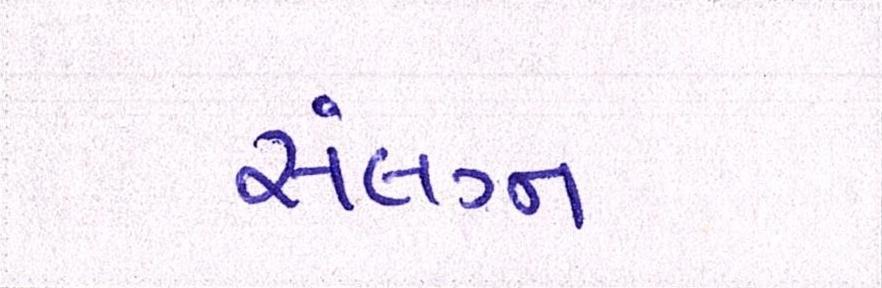 સંલગ્ન